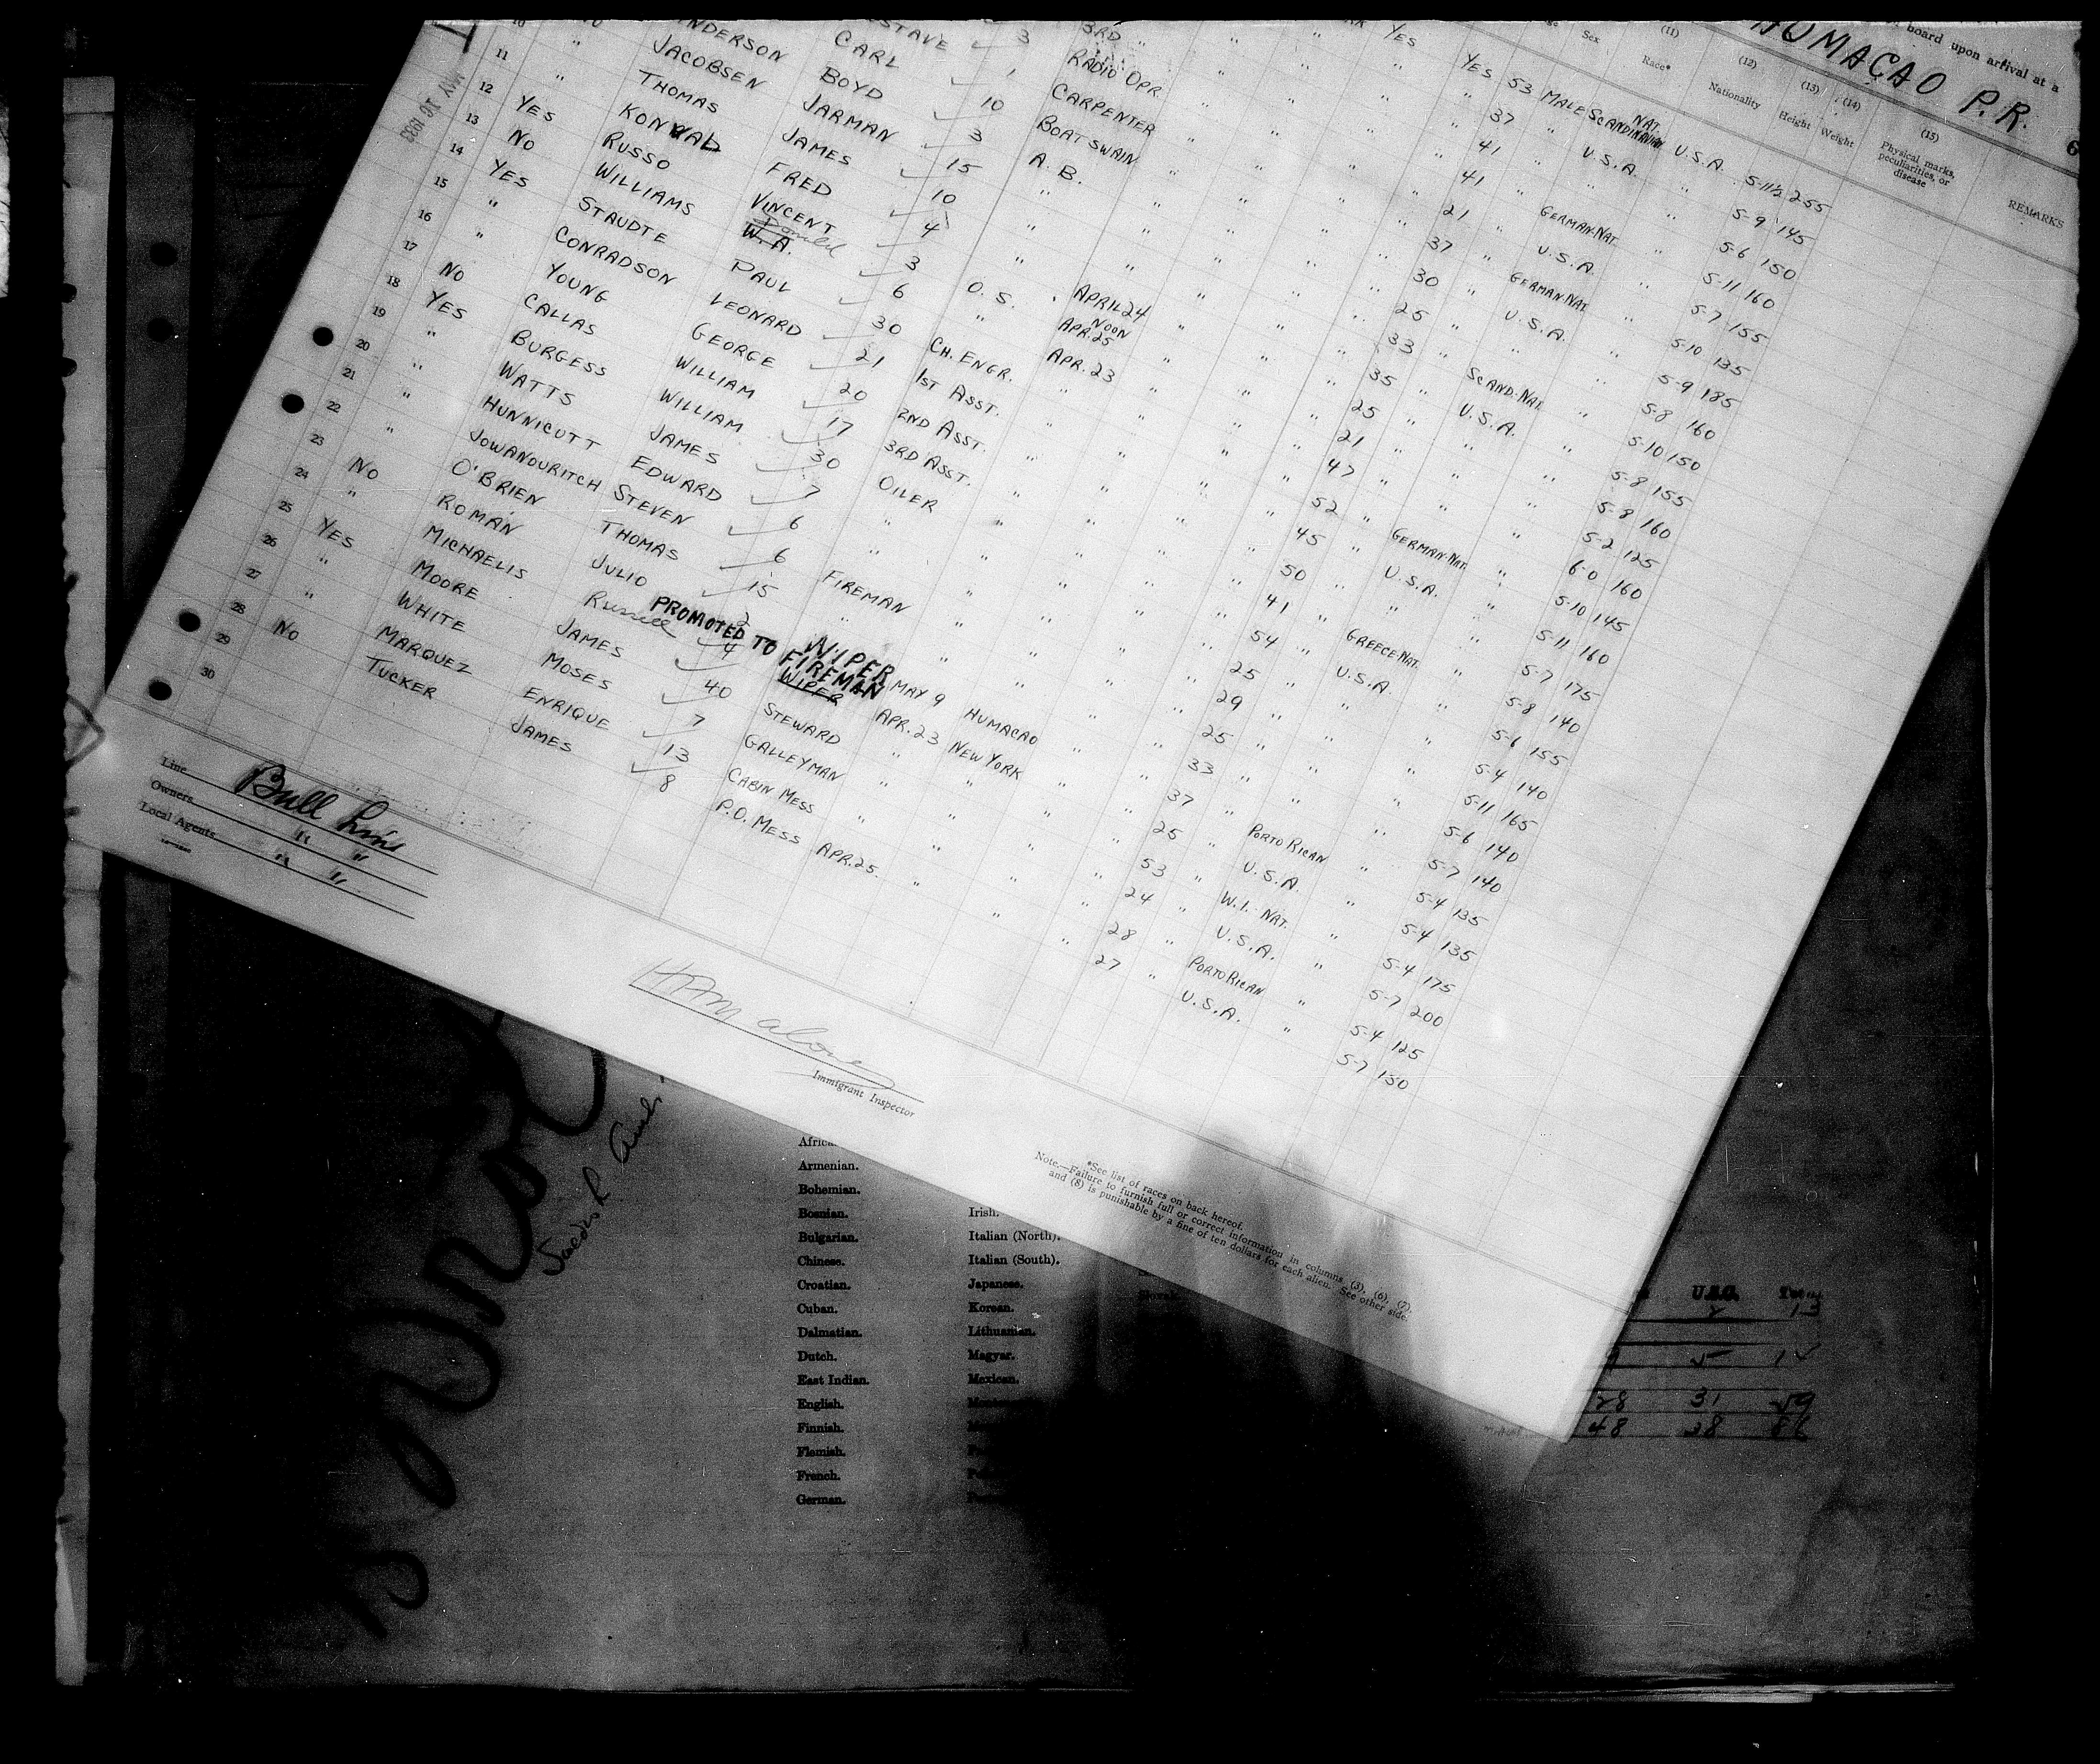 board upon arrival at a
HUMACAO P.R.
(11) (12) (13) (14) (15)
Sex Race* Nationality Height Weight Physical marks, peculiarities, or disease REMARKS
MAY 16 1933
YES 53 MALE SCANDINAVIAN NAT. U.S.A. 5-11½ 255
YES " 37 " U.S.A. " 5-9 145
" 41 " " " 5-6 150
" 41 " GERMAN-NAT. " 5-11 160
3 RADIO OPR. " " " " 21 " U.S.A. " 5-7 155
GUSTAVE 1 CARPENTER " " " " 37 " GERMAN-NAT. " 5-10 135
CARL 10 BOATSWAIN " " " " 30 " U.S.A. " 5-9 185
ANDERSON BOYD 3 A. B. " " " " 25 " " " 5-8 160
JACOBSEN JARMAN 15 " " " " " 33 " SCAND-NAT. " 5-10 150
10 " THOMAS JAMES 10 " " " " " 35 " U.S.A. " 5-8 155
11 " KONWAL FRED 4 " APRIL 24 " " " 25 " " " 5-8 160
12 YES RUSSO VINCENT 3 O. S. NOON APR. 25 " " " 21 " " " 5-2 125
13 NO WILLIAMS Donald W. A. 6 " APR. 23 " " " 47 " " " 6-0 160
14 YES STAUDTE PAUL 30 CH. ENGR. " " " " 52 " GERMAN-NAT. " 5-10 145
15 " CONRADSON LEONARD 21 1ST ASST. " " " " 45 " U.S.A. " 5-11 160
16 " YOUNG GEORGE 20 2ND ASST. " " " " 50 " " " 5-7 175
17 NO CALLAS WILLIAM 17 3RD ASST. " " " " 41 " GREECE-NAT. " 5-8 140
18 YES BURGESS WILLIAM 30 OILER " " " " 54 " U.S.A. " 5-6 155
19 " WATTS JAMES 7 " " " " " 25 " " " 5-4 140
20 " HUNNICUTT EDWARD 6 " " " " " 29 " " " 5-11 165
21 " JOWANOURITCH STEVEN 6 FIREMAN " " " " 25 " " " 5-6 140
22 " O'BRIEN THOMAS 15 " " " " " 33 " " " 5-7 140
23 NO ROMAN JULIO 2 WIPER MAY 9 HUMACAO " " 37 " PORTO RICAN " 5-4 135
24 " MICHAELIS Russell 4 PROMOTED TO FIREMAN WIPER APR. 23 NEW YORK " " 25 " U.S.A. " 5-4 135
25 YES MOORE JAMES 40 STEWARD " " " " 53 " W.I. NAT. " 5-4 175
26 " WHITE MOSES 7 GALLEYMAN " " " " 24 " U.S.A. " 5-7 200
27 " MARQUEZ ENRIQUE 13 CABIN MESS " " " " 28 " PORTO RICAN " 5-4 125
28 NO TUCKER JAMES 8 P.O. MESS APR. 25 " " " 27 " U.S.A. " 5-7 130
29
30
Line Bull Line
Owners " "
Local Agents " "
Immigrant Inspector
*See list of races on back hereof.
Note.—Failure to furnish full or correct information in columns (3), (6), (7),
and (8) is punishable by a fine of ten dollars for each alien. See other side.
Armenian.
Bohemian.
Bosnian. Irish.
Bulgarian. Italian (North).
Chinese. Italian (South).
Croatian. Japanese.
Cuban. Korean.
Dalmatian. Lithuanian.
Dutch. Magyar.
East Indian. Mexican.
English.
Finnish.
Flemish.
French.
German.
28 31 59